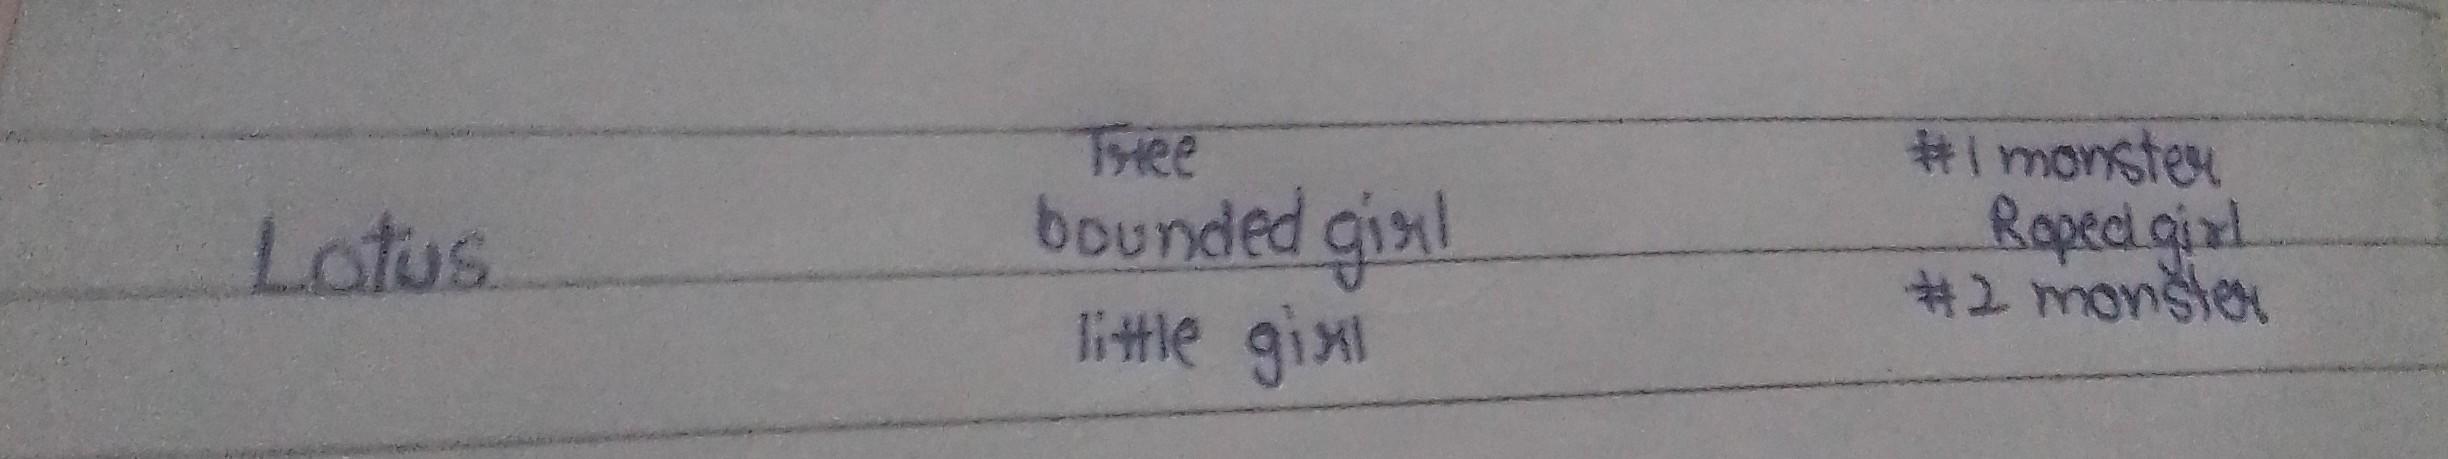 Lotus
Tree
bounded girl
little girl
#1 monster
Roped girl
#2 monster